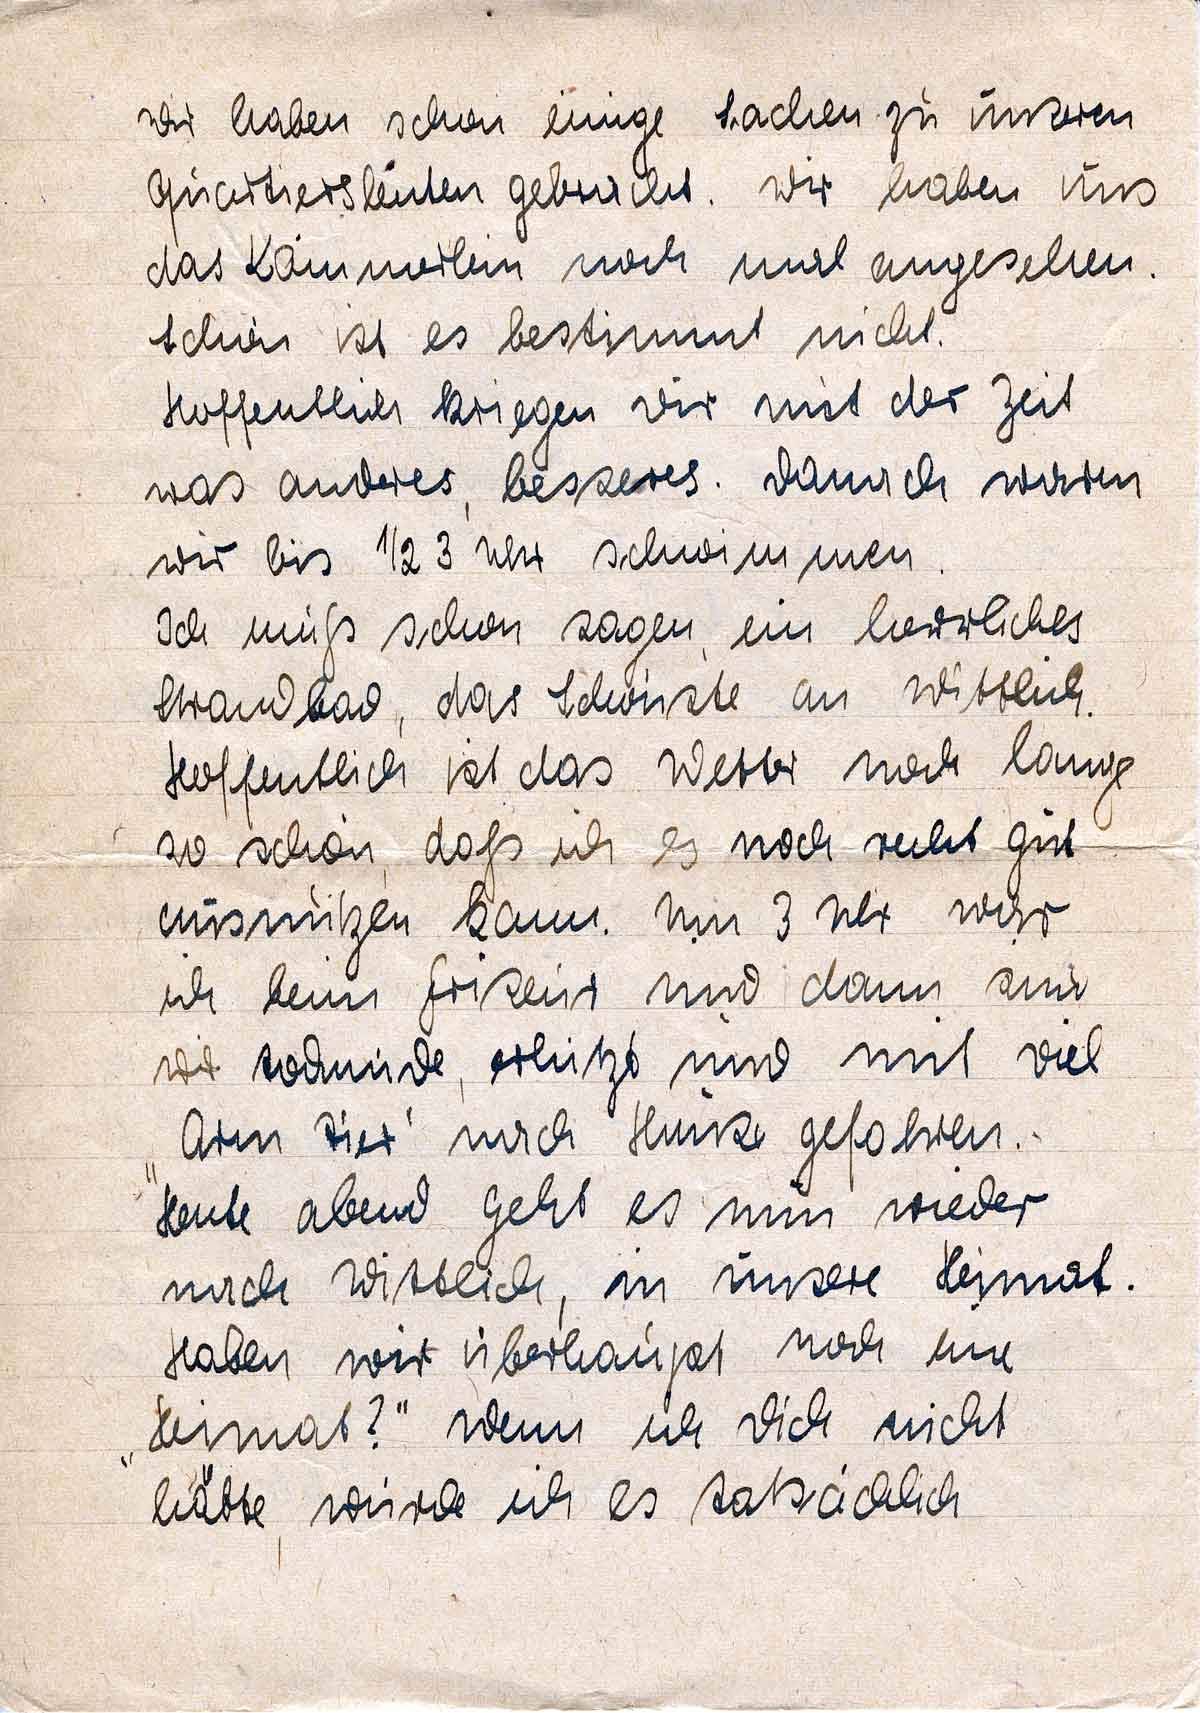 wir haben schon einige Sachen zu unseren
Quartiersleuten gebracht. Wir haben uns
das Kämmerlein noch mal angesehen.
Schön ist es bestimmt nicht.
Hoffentlich kriegen wir mit der Zeit
was anderes, besseres. Danach waren
wir bis 1/2 3 Uhr schwimmen.
Ich muß schon sagen, ein herrliches
Strandbad, das Schönste an Wittlich.
Hoffentlich ist das Wetter noch lange
so schön, daß ich es noch recht gut
ausnützen kann. Um 3 Uhr war
ich beim Friseur und dann sind
wir todmüde, erhitzt und mit viel
"Arm Tier' nach Hause gefahren.
Heute abend geht es nun wieder
nach Wittlich, in unsere Heimat.
Haben wir überhaupt noch eine
„Heimat?" Wenn ich Dich nicht
hätte, würde ich es tatsächlich